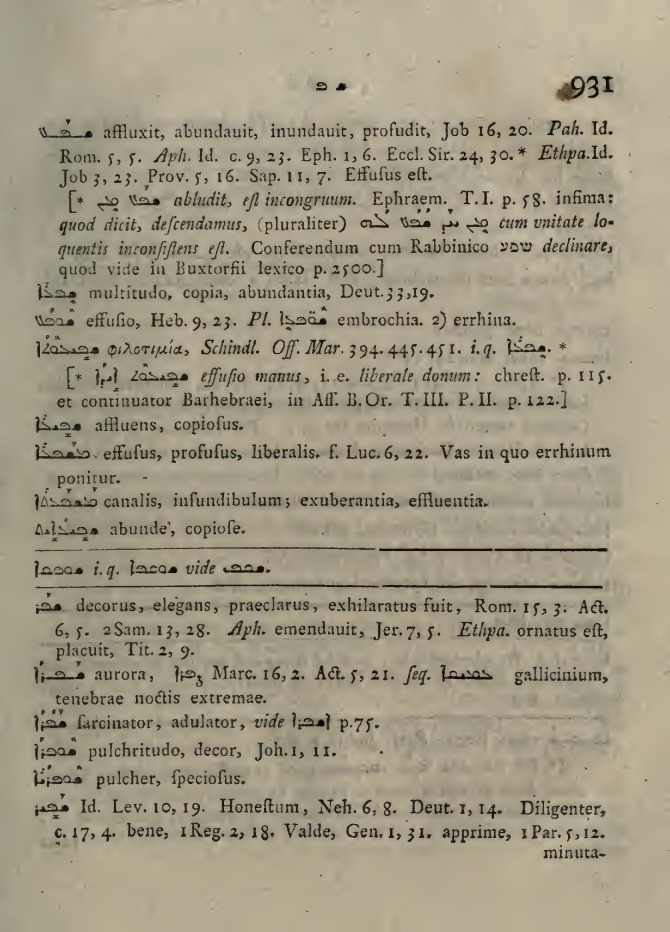 ܫ ܦ 931
ܫܦܥ affluxit, abundauit, inundauit, profudit, Job 16, 20. Pah. Id.
Rom. 5, 5. Aph. Id. c. 9, 23. Eph. 1, 6. Eccl. Sir. 24, 30. * Ethpa. Id.
Job 3, 23. Prov. 5, 16. Sap. 11, 7. Effuſus eſt.
[* ܫܦܥ abludit, eſt incongruum. Ephraem. T. I. p. 58. infima:
quod dicit, deſcendamus, (pluraliter) ܫܦܥ cum vnitate lo-
quentis inconſiſtens eſt. Conferendum cum Rabbinico שפע declinare,
quod vide in Buxtorfii lexico p. 2500.]
ܫܦܥܐ multitudo, copia, abundantia, Deut. 33, 19.
ܫܘܦܥ effuſio, Heb. 9, 23. Pl. ܫܘܦܥܐ embrochia. 2) errhina.
ܫܦܝܥܘܬܐ φιλοτιμία, Schindl. Off. Mar. 394. 445. 451. i. q. ܫܦܥܐ. *
[* ܫܦܝܥܘܬ ܐܝܕܐ effuſio manus, i. e. liberale donum: chreſt. p. 115.
et continuator Barhebraei, in Aſſ. B. Or. T. III. P. II. p. 122.]
ܫܦܝܥܐ affluens, copioſus.
ܡܫܦܥܐ effuſus, profuſus, liberalis. f. Luc. 6, 22. Vas in quo errhinum
ponitur. -
ܡܫܦܥܬܐ canalis, infundibulum; exuberantia, effluentia.
ܫܦܝܥܐܝܬ abunde, copioſe.
i. q. vide
ܫܦܪ decorus, elegans, praeclarus, exhilaratus fuit, Rom. 15, 3. Act.
6, 5. 2 Sam. 13, 28. Aph. emendauit, Jer. 7, 5. Ethpa. ornatus eſt,
placuit, Tit. 2, 9.
ܫܦܪܐ aurora, ܨܦܪܐ Marc. 16, 2. Act. 5, 21. ſeq. gallicinium,
tenebrae noctis extremae.
ܫܦܪܐ ſarcinator, adulator, vide p. 75.
ܫܘܦܪܐ pulchritudo, decor, Joh. 1, 11.
pulcher, ſpecioſus.
ܫܦܝܪ Id. Lev. 10, 19. Honeſtum, Neh. 6, 8. Deut. 1, 14. Diligenter,
c. 17, 4. bene, 1 Reg. 2, 18. Valde, Gen. 1, 31. apprime, 1 Par. 5, 12.
minuta-